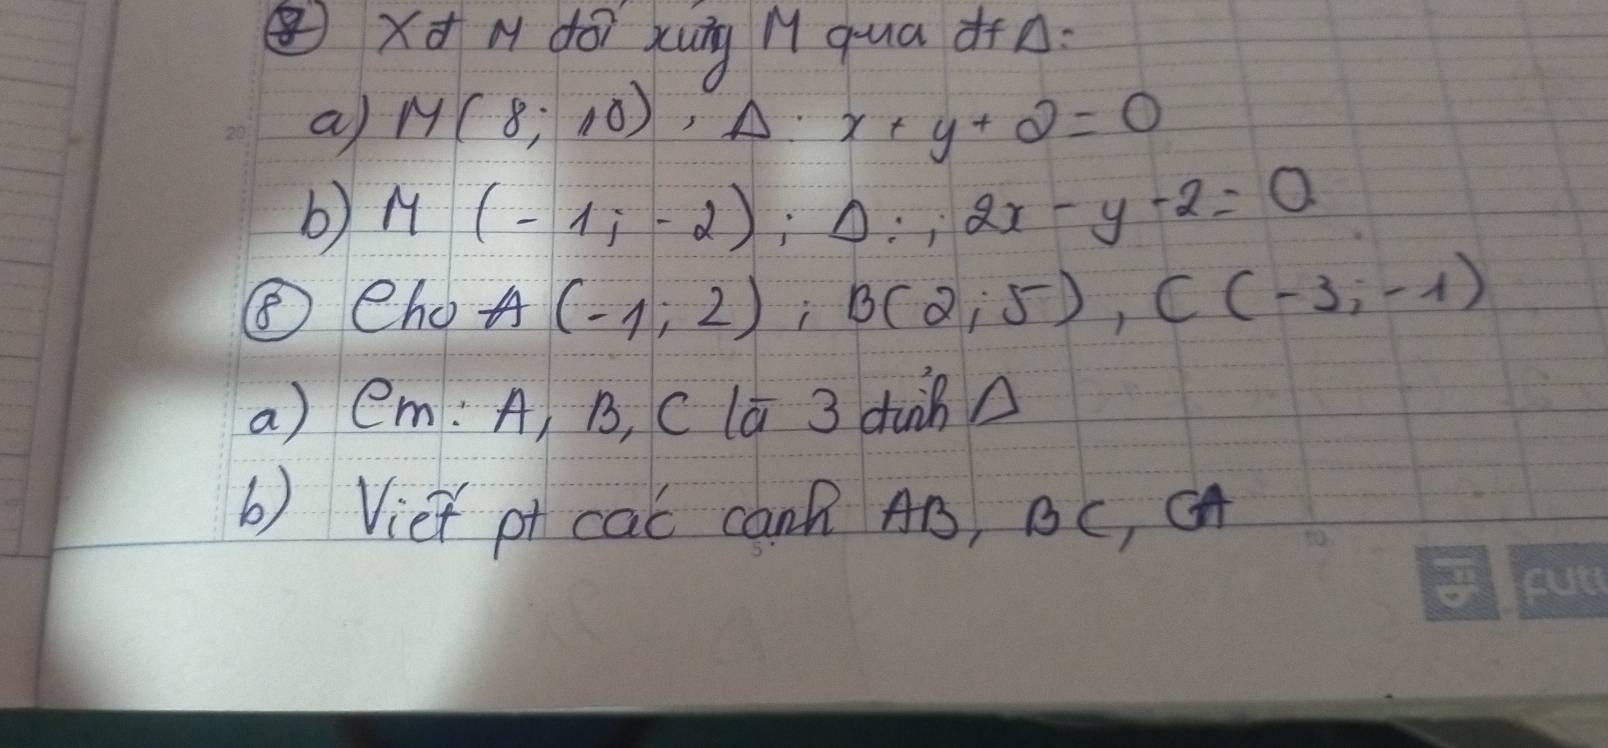 ⑦ Xđ N đối xứng M qua đt Δ:
a) M(8; 10), Δ: x + y + 2 = 0
b) M (-1; -2); Δ: ; 2x - y - 2 = 0
⑧ Cho A (-1; 2); B(2; 5), C (-3; -1)
a) Cm: A, B, C là 3 đỉnh Δ
b) Viết pt các cạnh AB, BC, CA